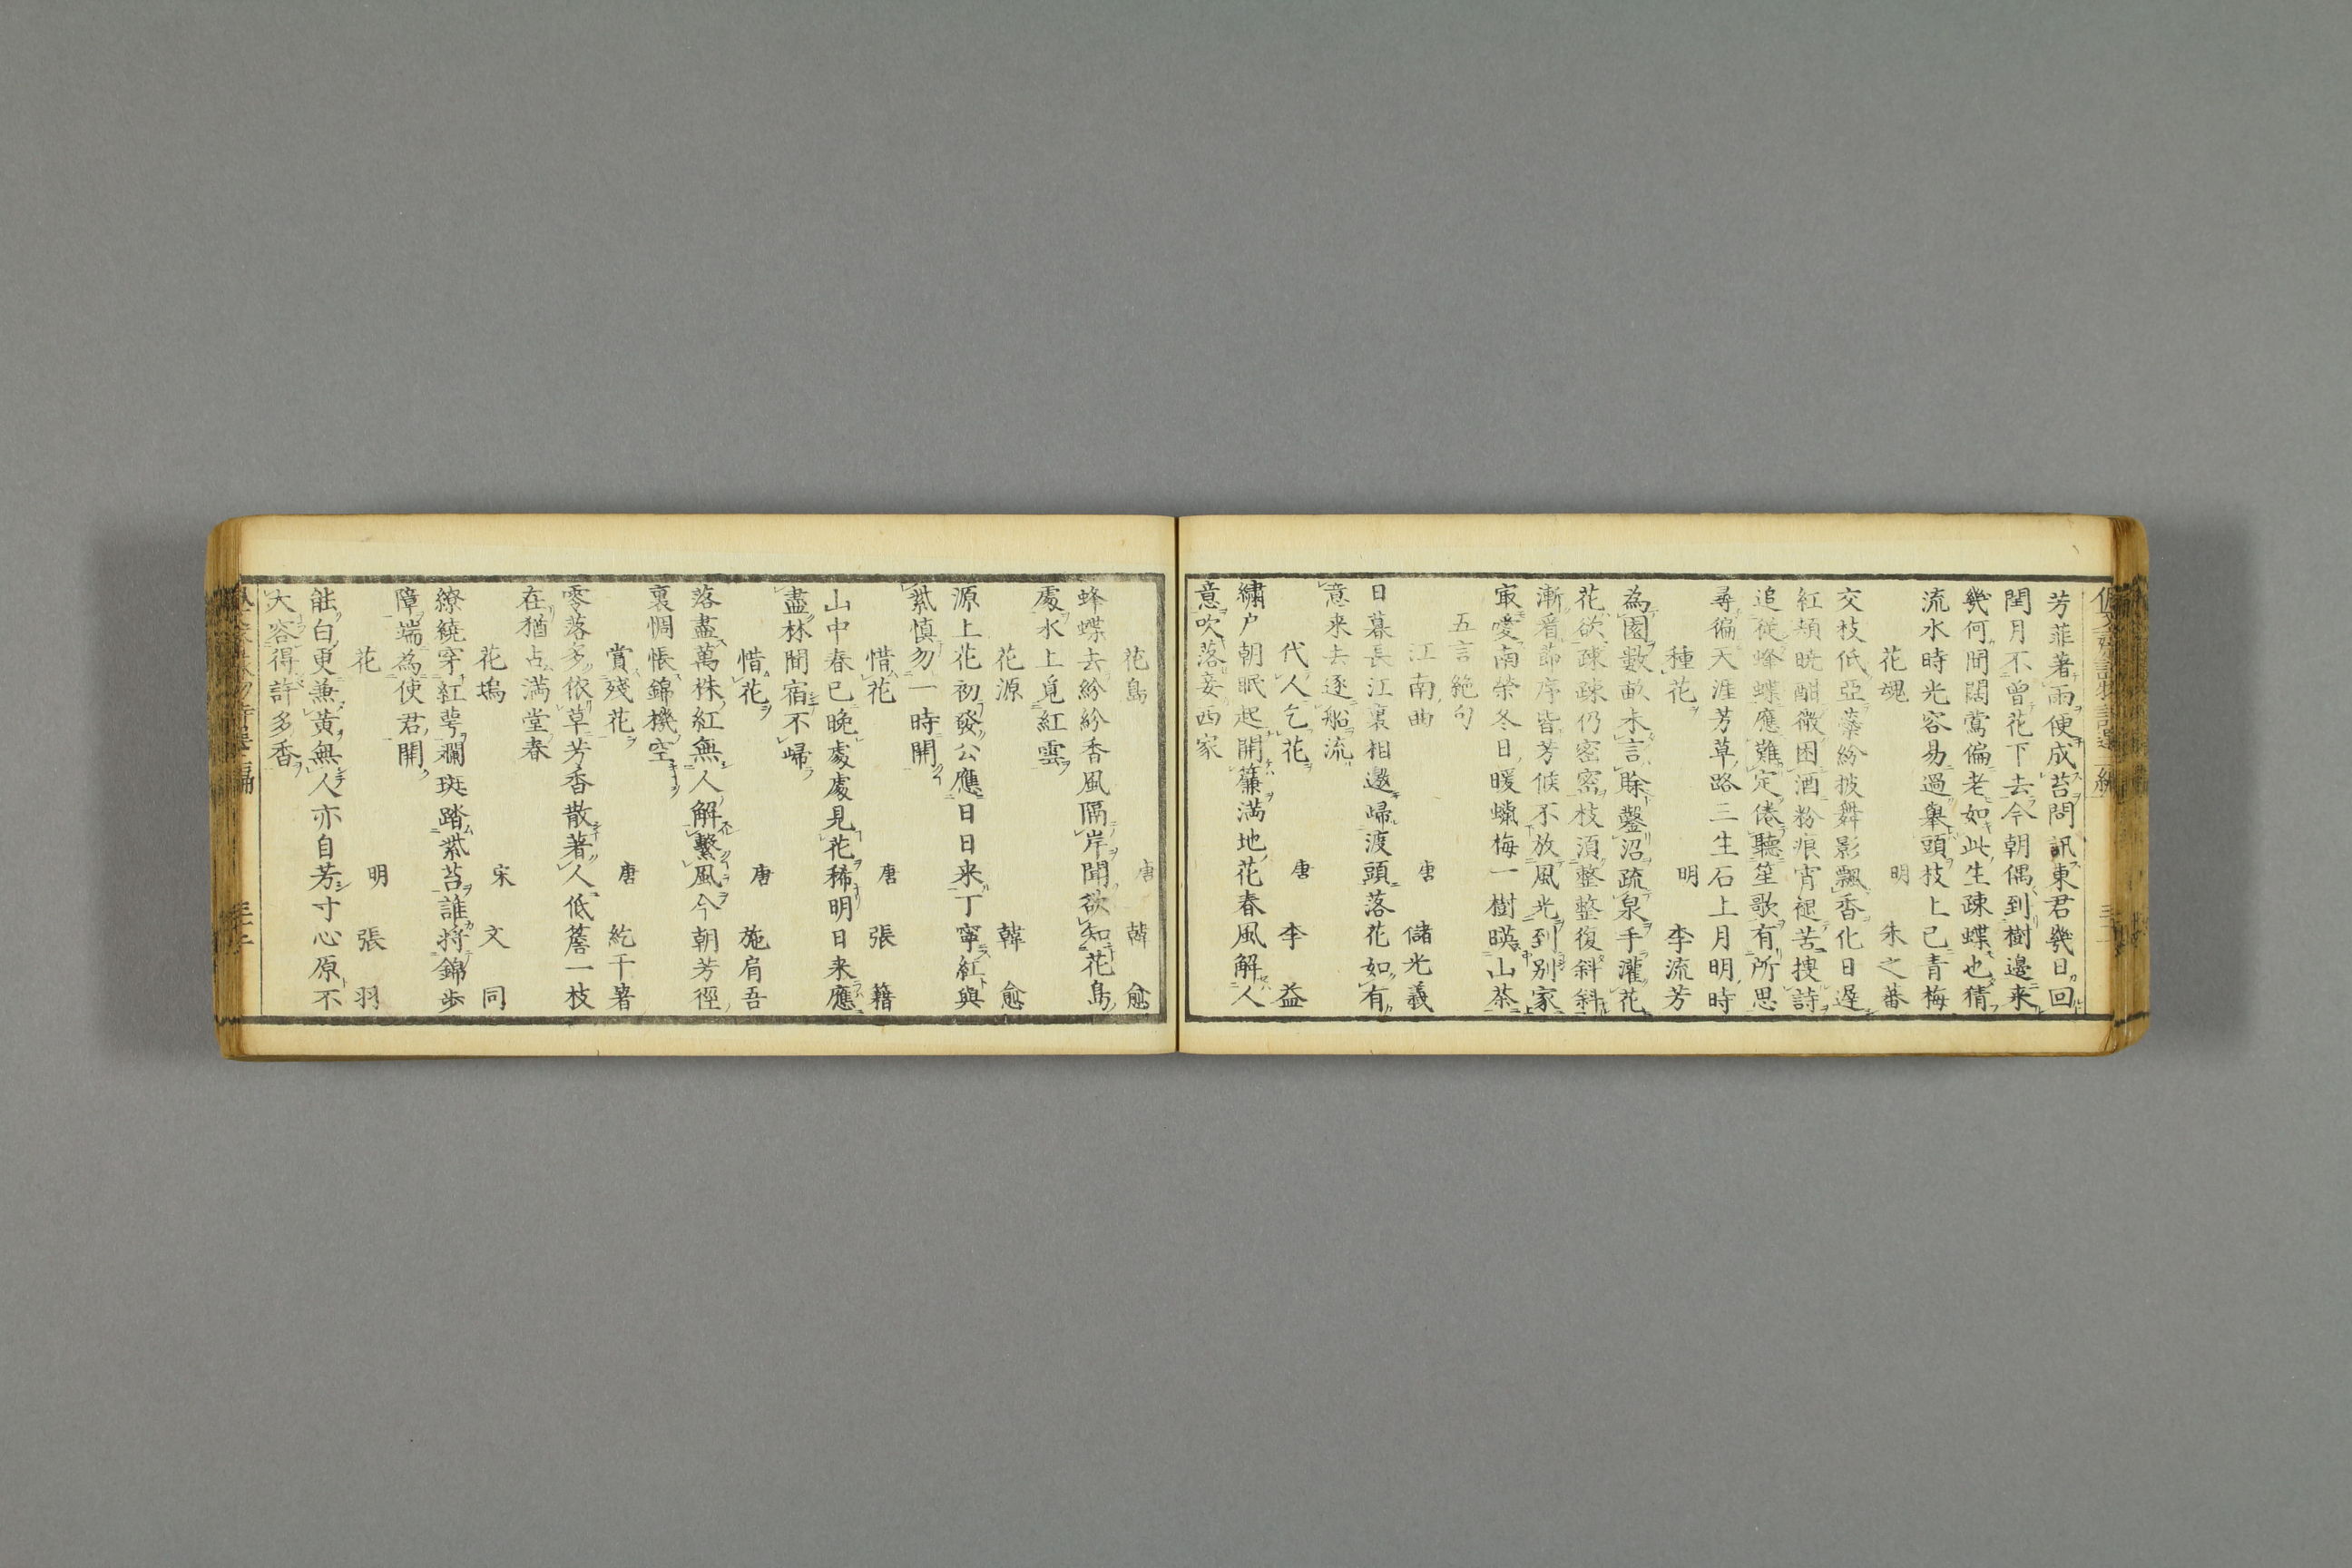 芳菲著雨便成苔問訊東君幾日回
閏月不曾花下去今朝偶到樹邊来
幾何間闊鶯偏老如此生疎蝶也猜
流水時光容易過舉頭枝上已青梅
花魂 明 朱之蕃
交枝低亞蘂紛披舞影飄香化日遲
紅頰暁酣微困酒粉痕宵褪苦捜詩
追従蜂蝶應難定倦聽笙歌有所思
尋徧天涯芳草路三生石上月明時
種花 明 李流芳
為園數畝未言賒鑿沼疏泉手灌花
花欲疎疎仍密密枝須整整復斜斜
漸看節序皆芳候不放風光到別家
冣愛南榮冬日暖蠟梅一樹暎山茶
五言絶句
江南曲 唐 儲光羲
日暮長江裏相邀歸渡頭落花如有
意来去逐船流
代人乞花 唐 李益
繡户朝眠起開簾満地花春風解人
意吹落妾西家
花島 唐 韓愈
蜂蝶去紛紛香風隔岸聞欲知花島
處水上覓紅雲
花源 韓愈
源上花初發公應日日来丁寧紅與
紫慎勿一時開
惜花 唐 張籍
山中春已晩處處見花稀明日来應
盡林間宿不歸
惜花 唐 施肩吾
落盡萬株紅無人解繫風今朝芳徑
裏惆悵錦機空
賞殘花 唐 紇干著
零落多依草芳香散著人低簷一枝
在猶占満堂春
花塢 宋 文同
繚繞穿紅萼斓斑踏紫苔誰将錦歩
障端為使君開
花 明 張羽
能白更兼黄無人亦自芳寸心原不
大容得許多香